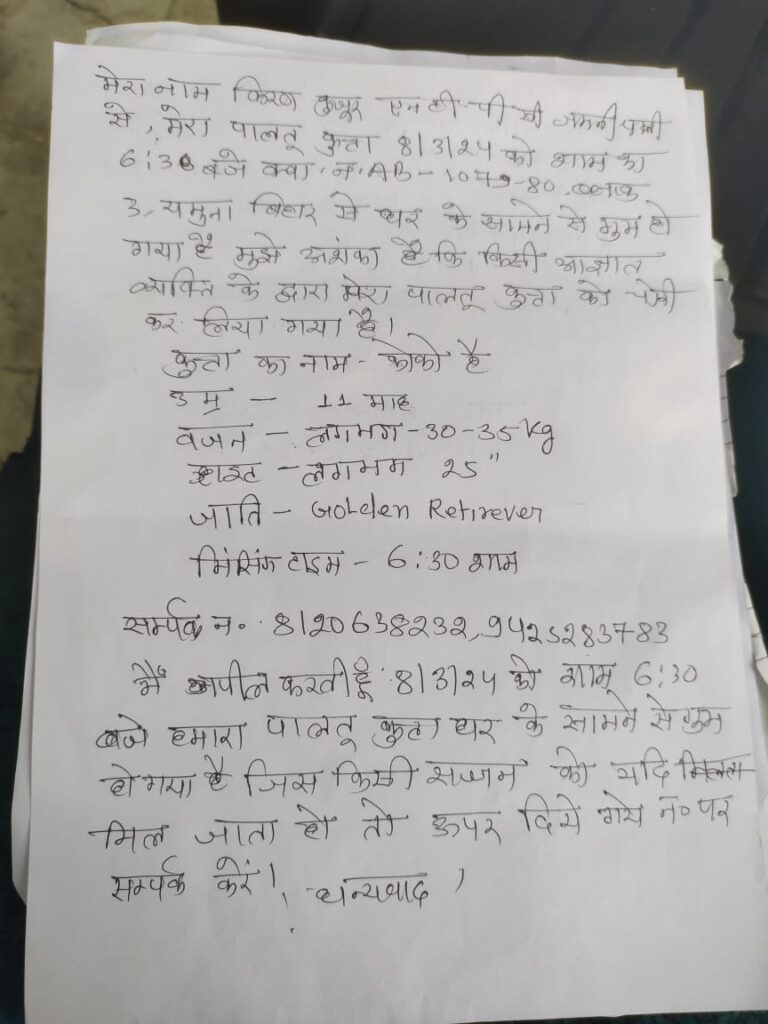 मेरा नाम किरण लाजूर एनटीपीसी जमनीपाली
से, मेरा पालतू कुत्ता 8/3/24 को शाम का
6:30 बजे क्वा. न. AB-1079-80, ब्लाक
3, यमुना बिहार से घर के सामने से गुम हो
गया है मुझे अशंका है कि किसी अज्ञात
व्यक्ति के द्वारा मेरा पालतू कुत्ता को चोरी
कर लिया गया है।
कुत्ता का नाम - कोको है
उम्र - 11 माह
वजन - लगभग - 30-35 kg
हाइट - लगभग 25"
जाति - Golden Retirever
मिसिंग टाइम - 6:30 शाम
सर्म्पक न० 8120638232, 9425283783
मैं अपील करती हूँ 8/3/24 को शाम 6:30
बजे हमारा पालतू कुत्ता घर के सामने से गुम
हो गया है जिस किसी सज्जन को यदि
मिल जाता हो तो ऊपर दिये गये न० पर
सम्पर्क करें। धन्यवाद।